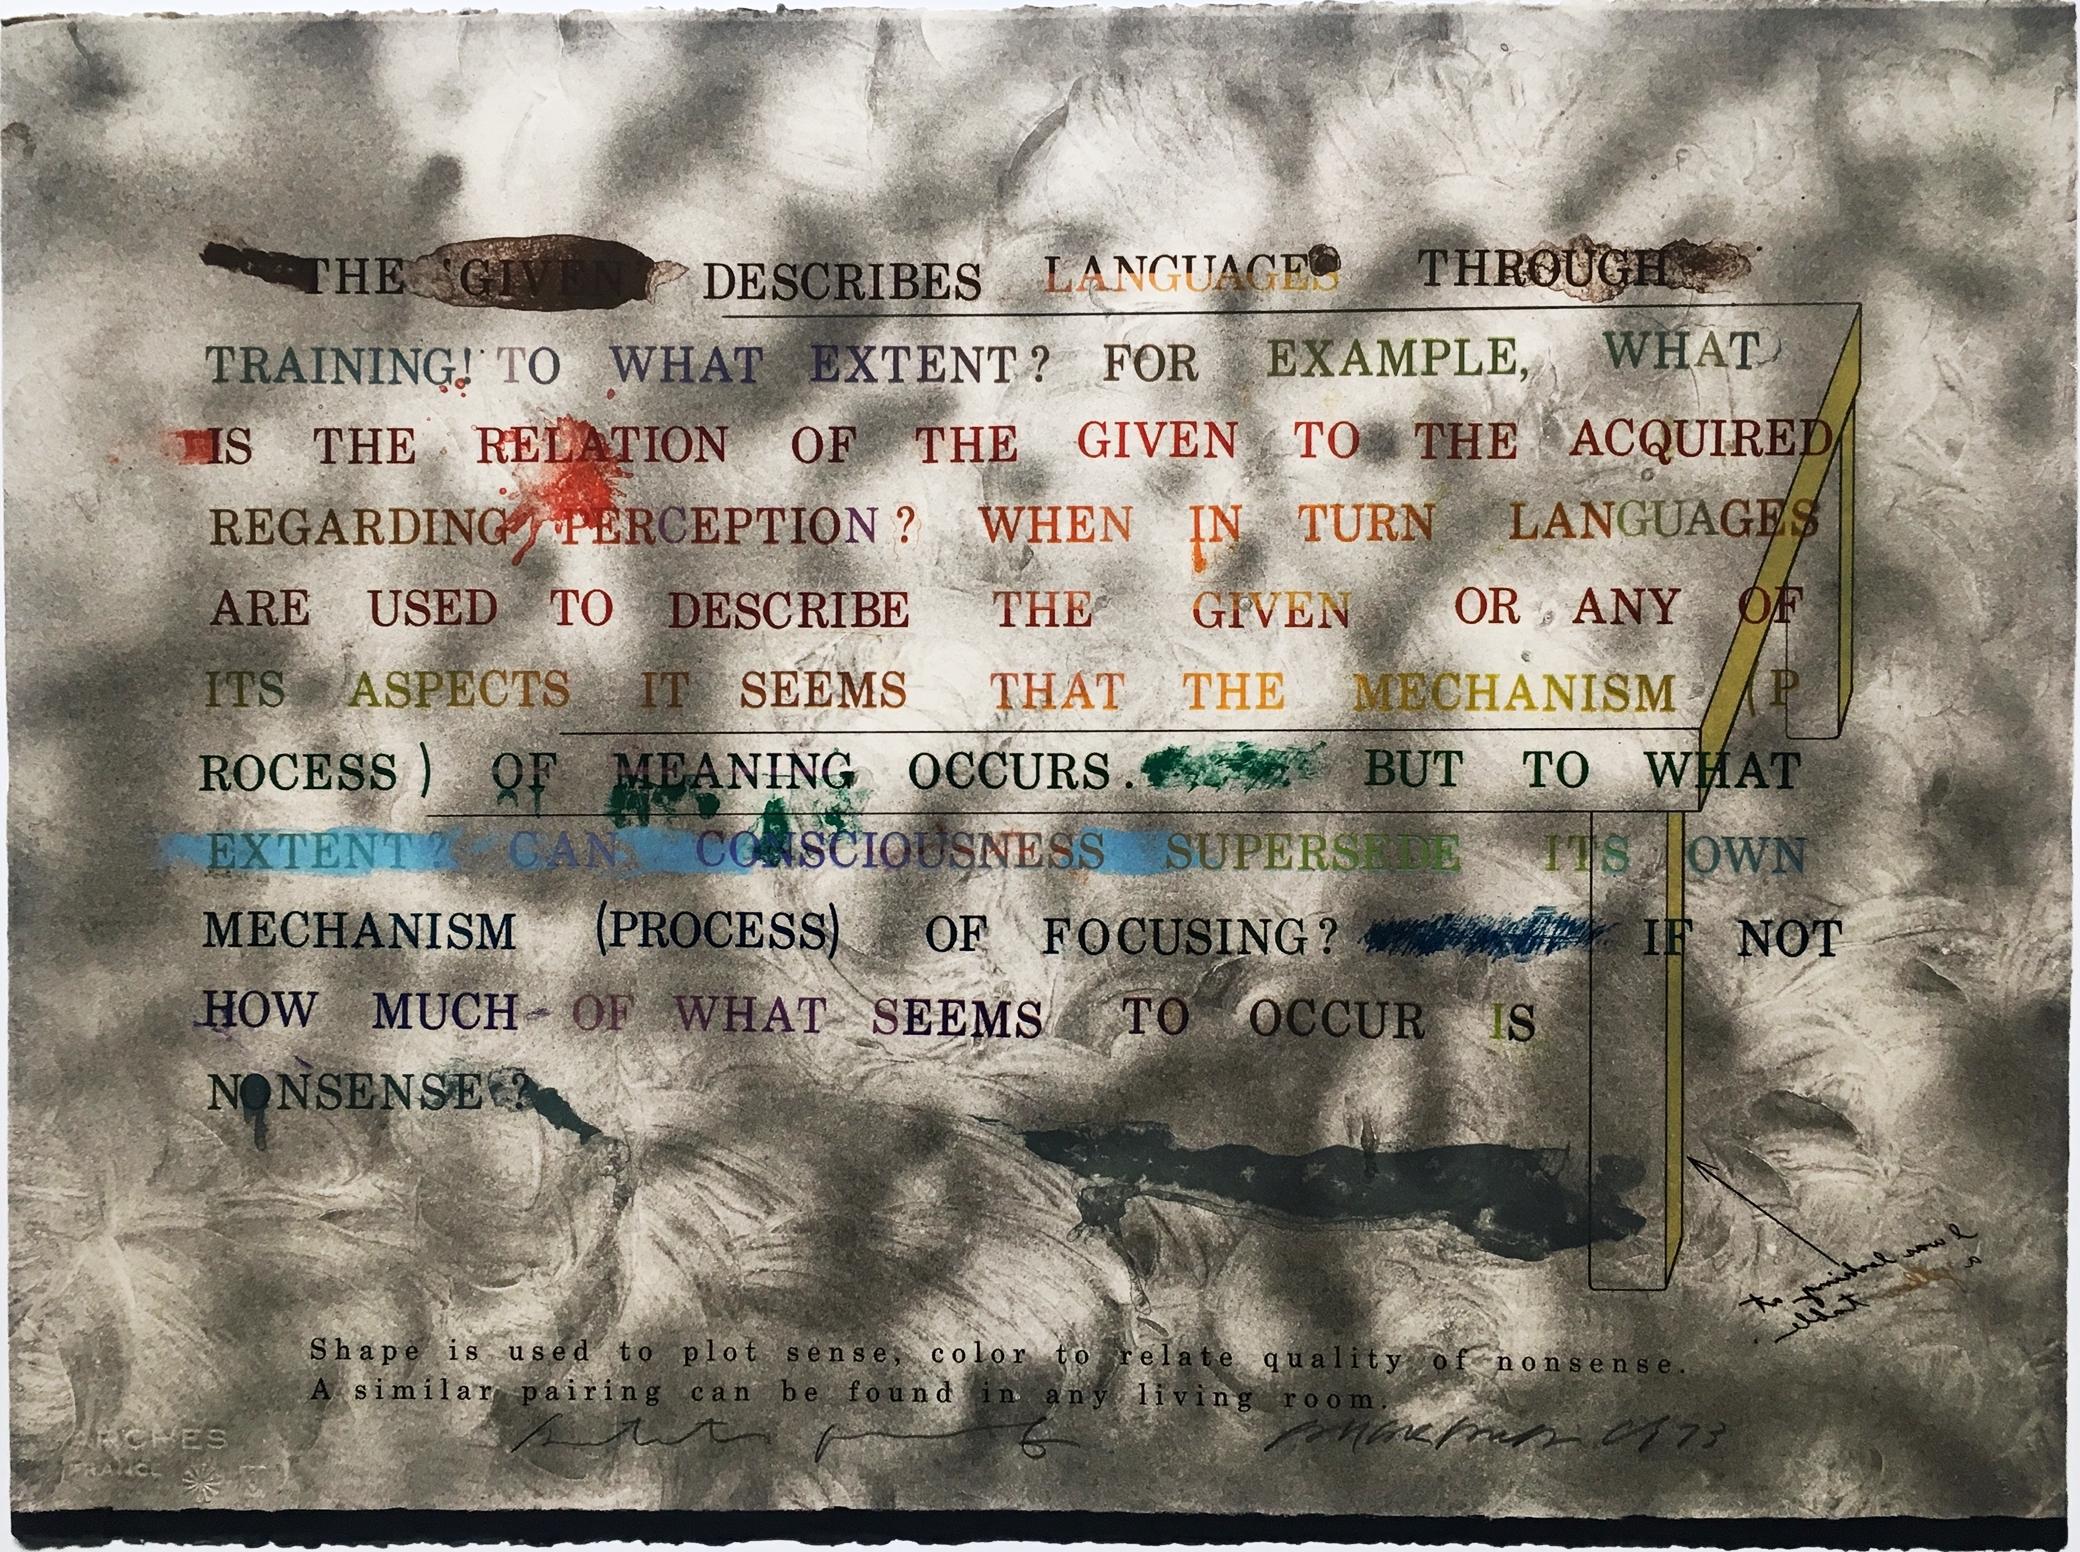 THE 'GIVEN DESCRIBES LANGUAGES THROUGH
TRAINING! TO WHAT EXTENT? FOR EXAMPLE, WHAT
IS THE RELATION OF THE GIVEN TO THE ACQUIRED
REGARDING PERCEPTION? WHEN IN TURN LANGUAGES
ARE USED TO DESCRIBE THE GIVEN OR ANY OF
ITS ASPECTS IT SEEMS THAT THE MECHANISM (P
ROCESS) OF MEANING OCCURS. BUT TO WHAT
EXTENT? CAN CONSCIOUSNESS SUPERSEDE ITS OWN
MECHANISM (PROCESS) OF FOCUSING? IF NOT
HOW MUCH OF WHAT SEEMS TO OCCUR IS
NONSENSE?
Shape is used to plot sense, color to relate quality of nonsense.
A similar pairing can be found in any living room.
ARCHES
FRANCE